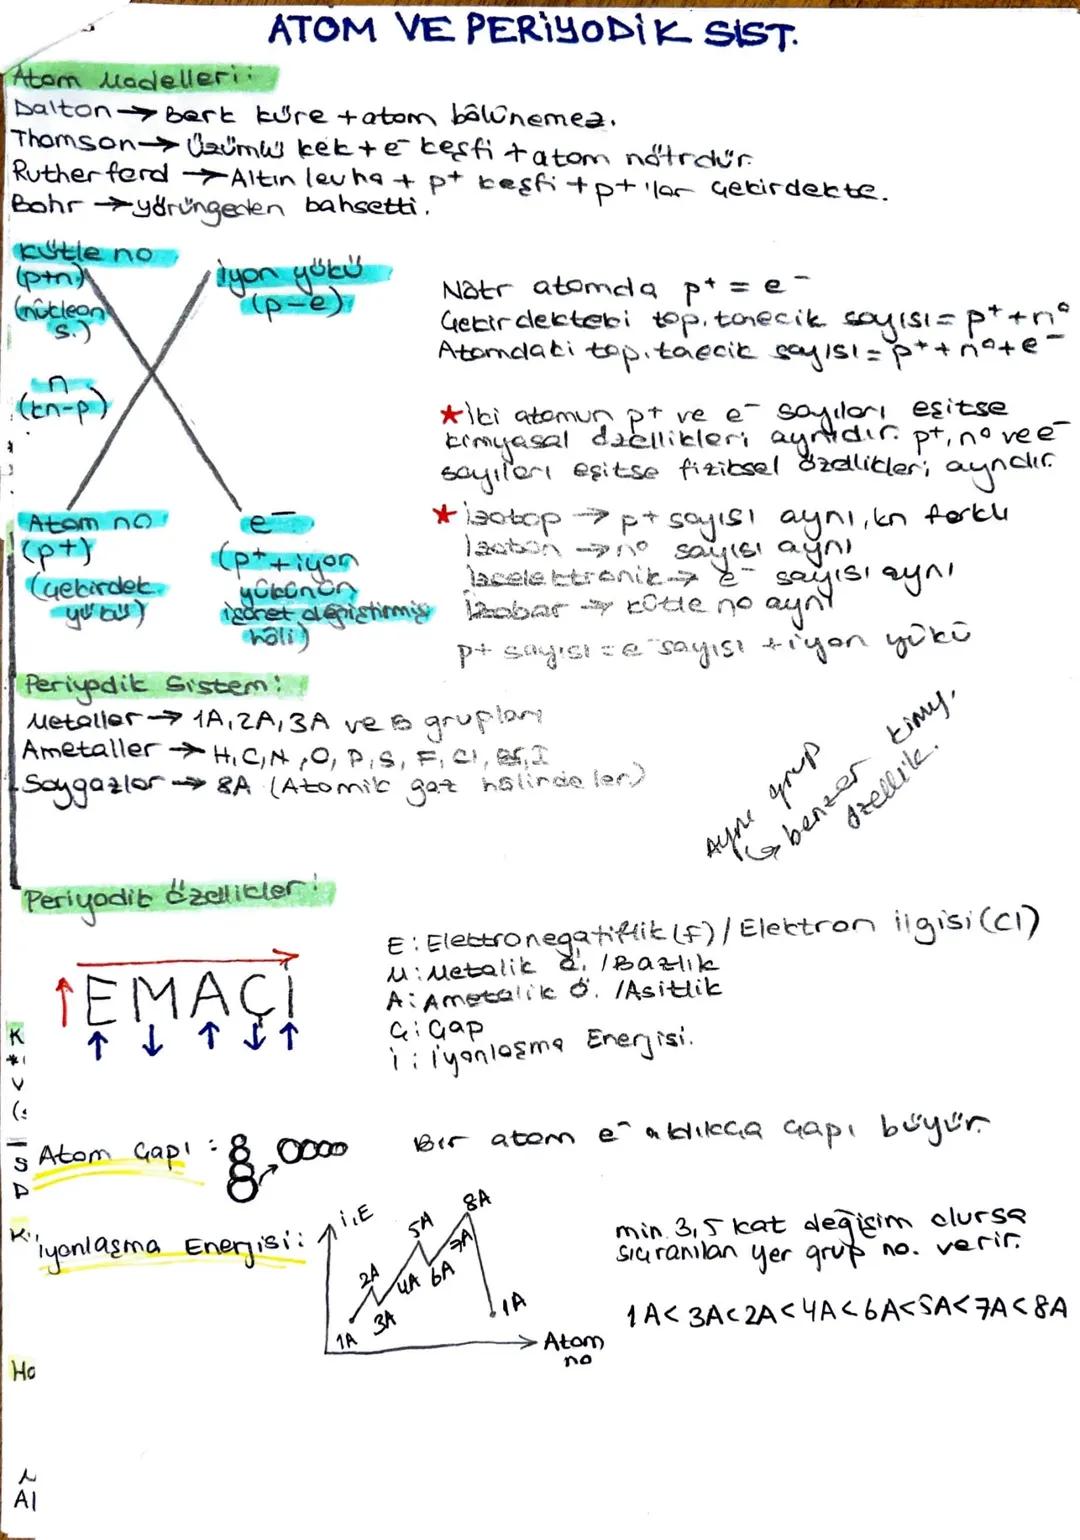 ATOM VE PERİYODİK SİST.
Atom Modelleri:
Dalton → Berk küre + atom bölünemez.
Thomson → Üzümlü kek + e⁻ keşfi + atom nötrdür.
Rutherford → Altın levha + p⁺ keşfi + p⁺'lar çekirdekte.
Bohr → yörüngeden bahsetti.
Kütle no
(p+n)
(nükleon
s.)
iyon yükü
(p-e)
n
(kn-p)
Atom no
(p+)
(çekirdek
yükü)
e⁻
(p⁺+iyon
yükünün
işaret değiştirmiş
hâli)
Nötr atomda p⁺ = e⁻
Çekirdekteki top. tanecik sayısı = p⁺+n⁰
Atomdaki top. taecik sayısı = p⁺+n⁰+e⁻
★ İki atomun p⁺ ve e⁻ sayıları eşitse
kimyasal özellikleri aynıdır. p⁺, n⁰ ve e⁻
sayıları eşitse fiziksel özellikleri aynıdır.
★ izotop → p⁺ sayısı aynı, kn farklı
İzoton → n⁰ sayısı aynı
İzoelektronik → e⁻ sayısı aynı
İzobar → kütle no aynı
p⁺ sayısı = e⁻ sayısı + iyon yükü
Periyodik Sistem:
Metaller → 1A, 2A, 3A ve B grupları
Ametaller → H, C, N, O, P, S, F, Cl, Br, I
Soygazlar → 8A (Atomik gaz hâlindeler)
Aynı grup
↳ benzer kimy.
özellik.
Periyodik Özellikler:
↑ EMAÇİ
↑ ↓ ↑ ↓ ↑
E: Elektronegatiflik (F) / Elektron ilgisi (Cl)
M: Metalik ö. / Bazlık
A: Ametalik ö. / Asitlik
Ç: Çap
İ: İyonlaşma Enerjisi.
K
V
S
D
Atom Çapı :
Bir atom e⁻ aldıkça çapı büyür.
K
İyonlaşma Enerjisi:
i.E
1A
2A
3A
4A
5A
6A
7A
8A
1A
Atom
no
min. 3,5 kat değişim olursa
sıçranılan yer grup no. verir.
1A < 3A < 2A < 4A < 6A < 5A < 7A < 8A
Ho
Al